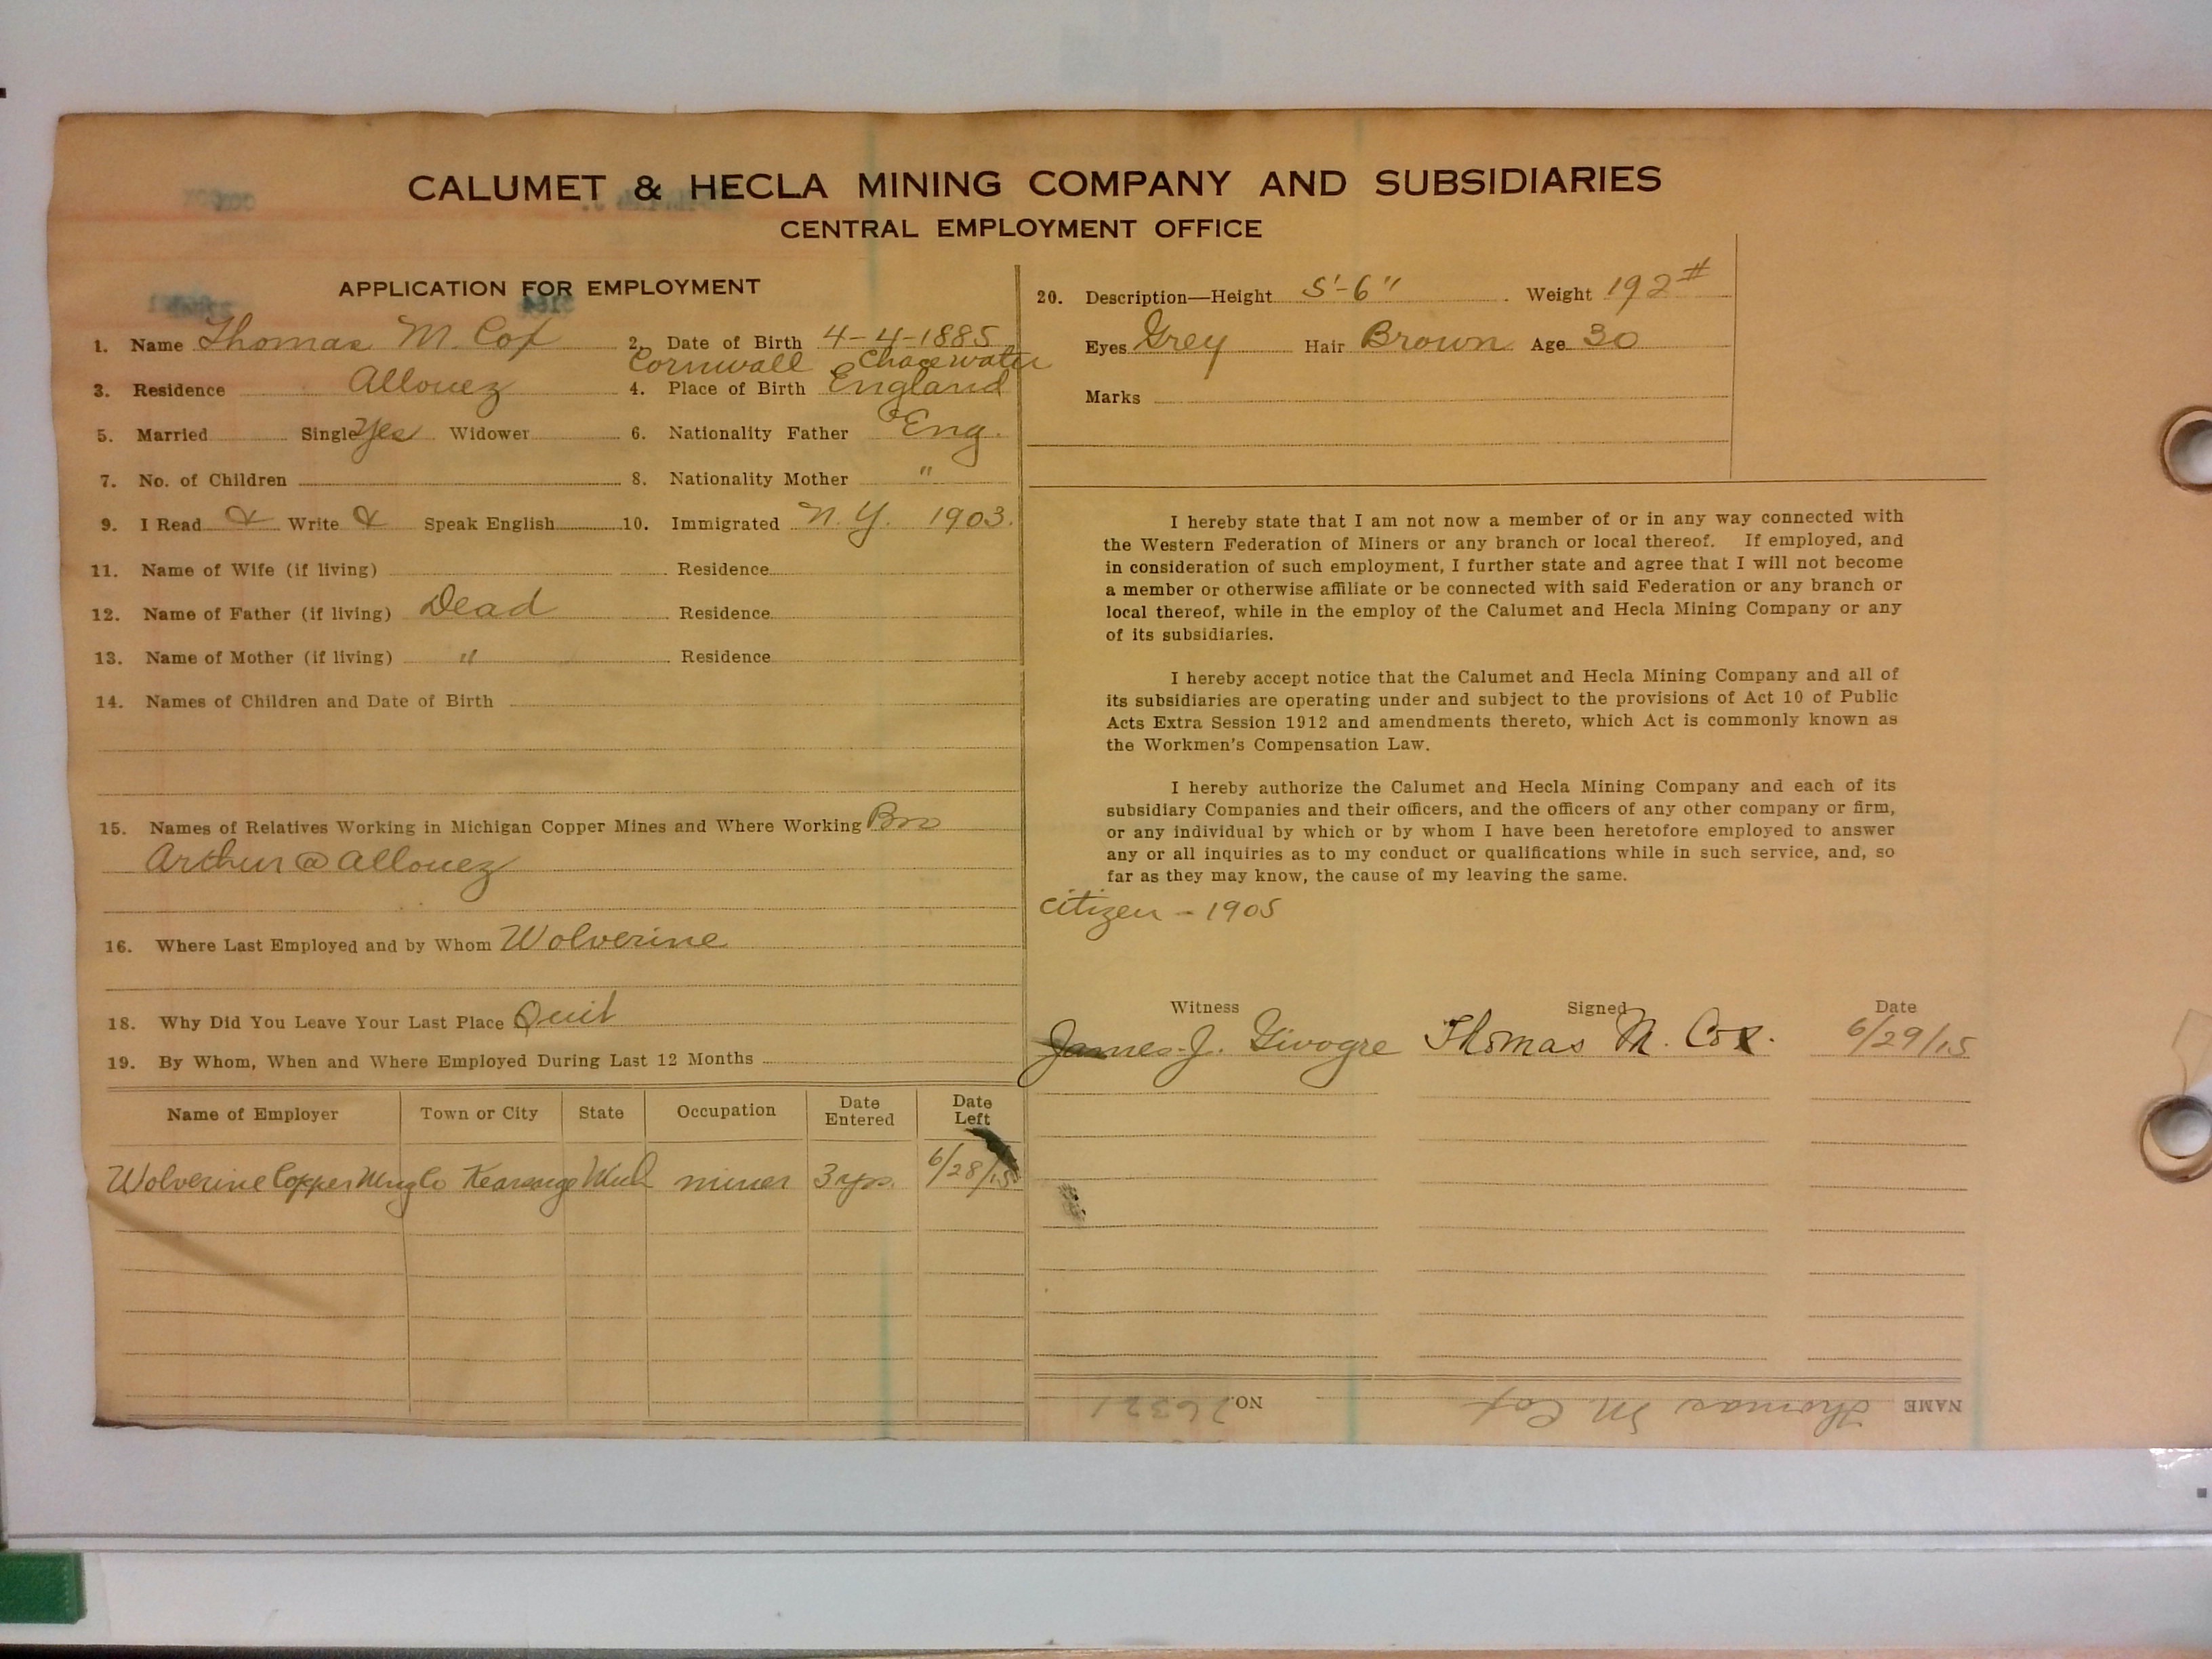 CALUMET & HECLA MINING COMPANY AND SUBSIDIARIES
CENTRAL EMPLOYMENT OFFICE
APPLICATION FOR EMPLOYMENT
1. Name Thomas M. Cox 2. Date of Birth 4-4-1885
Cornwall Chacewater
3. Residence Allouez 4. Place of Birth England
5. Married Single Yes Widower 6. Nationality Father Eng.
7. No. of Children 8. Nationality Mother "
9. I Read & Write & Speak English 10. Immigrated N.Y. 1903.
11. Name of Wife (if living) Residence
12. Name of Father (if living) Dead Residence
13. Name of Mother (if living) " Residence
14. Names of Children and Date of Birth
15. Names of Relatives Working in Michigan Copper Mines and Where Working Bro
Arthur @ Allouez
16. Where Last Employed and by Whom Wolverine
18. Why Did You Leave Your Last Place Quit
19. By Whom, When and Where Employed During Last 12 Months
Name of Employer Town or City State Occupation Date Entered Date Left
Wolverine Copper Mng Co Kearsarge Mich miner 3 yrs. 6/28/15
20. Description—Height 5'-6" Weight 192#
Eyes Grey Hair Brown Age 30
Marks
I hereby state that I am not now a member of or in any way connected with
the Western Federation of Miners or any branch or local thereof. If employed, and
in consideration of such employment, I further state and agree that I will not become
a member or otherwise affiliate or be connected with said Federation or any branch or
local thereof, while in the employ of the Calumet and Hecla Mining Company or any
of its subsidiaries.
I hereby accept notice that the Calumet and Hecla Mining Company and all of
its subsidiaries are operating under and subject to the provisions of Act 10 of Public
Acts Extra Session 1912 and amendments thereto, which Act is commonly known as
the Workmen's Compensation Law.
I hereby authorize the Calumet and Hecla Mining Company and each of its
subsidiary Companies and their officers, and the officers of any other company or firm,
or any individual by which or by whom I have been heretofore employed to answer
any or all inquiries as to my conduct or qualifications while in such service, and, so
far as they may know, the cause of my leaving the same.
citizen - 1905
Witness Signed Date
James J. Thomas M. Cox. 6/29/15
NAME Thomas M Cox NO. 26321